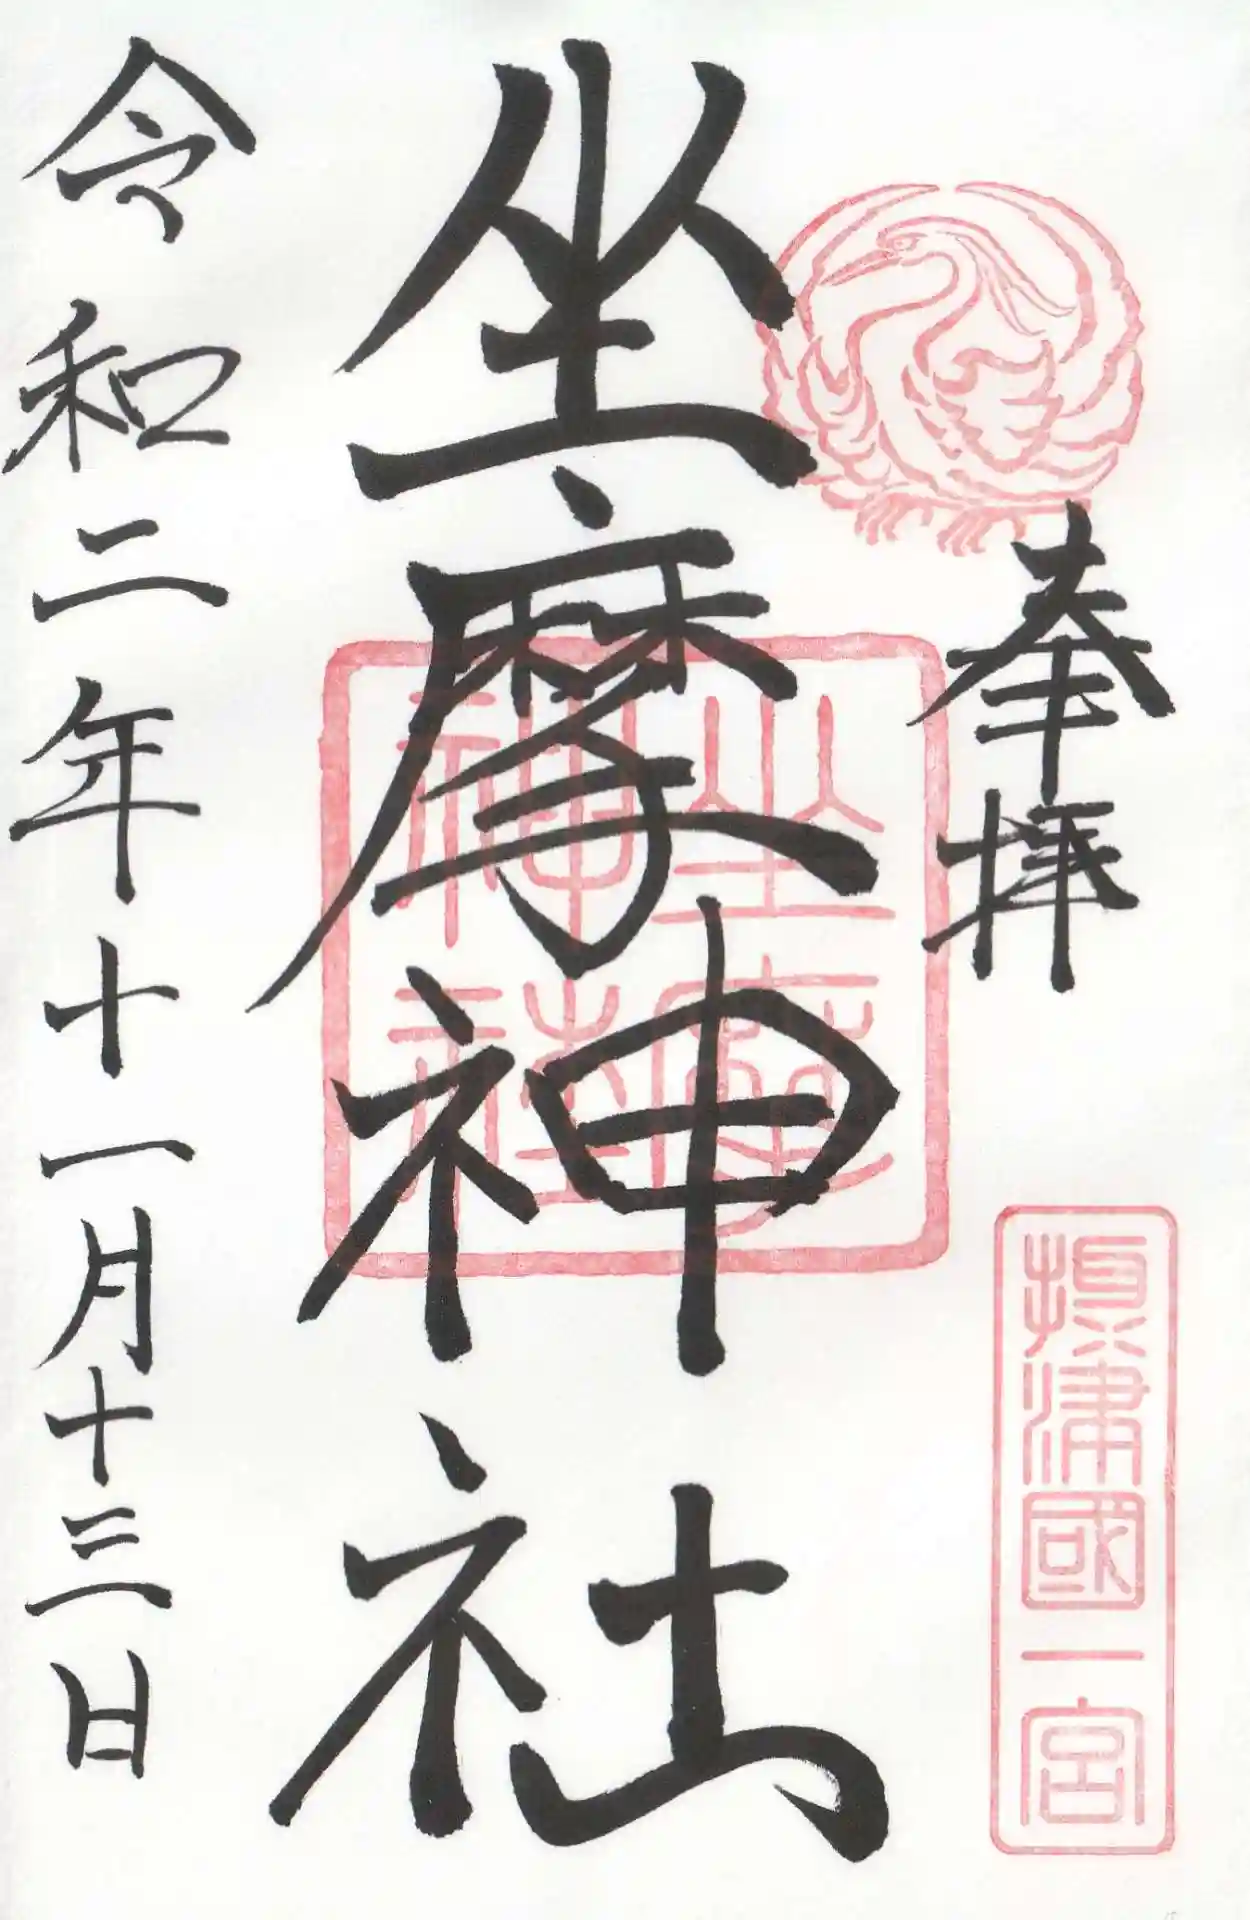 奉拝
攝津國一宮
坐摩神社
坐摩神社
令和二年十一月十三日